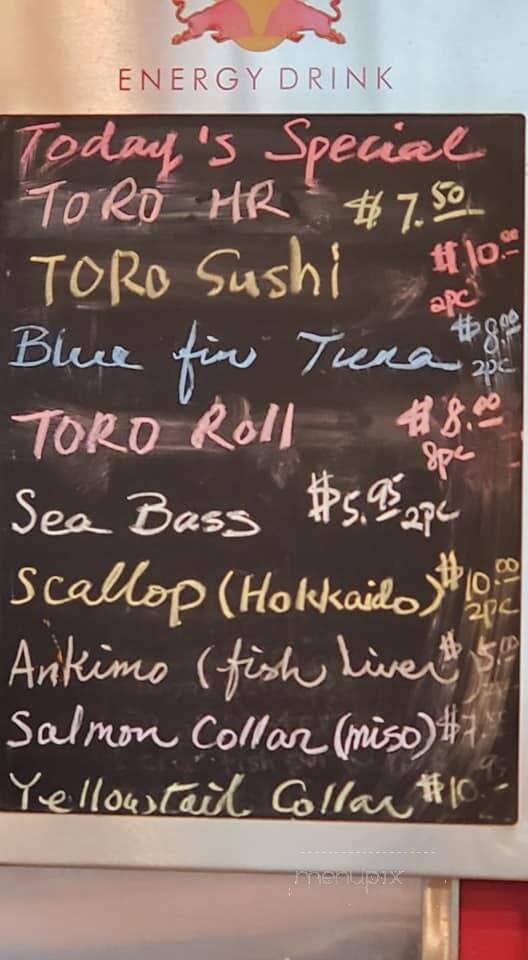 ENERGY DRINK
Today's Special
TORO HR $7.50
TORO Sushi $10.00 2pc
Blue fin Tuna $8.00 2pc
TORO Roll $8.00 8pc
Sea Bass $5.95 2pc
Scallop (Hokkaido) $10.00 2pc
Ankimo (fish Liver) $5.00
Salmon Collar (miso) $7.
Yellowtail Collar $10.95
menupix